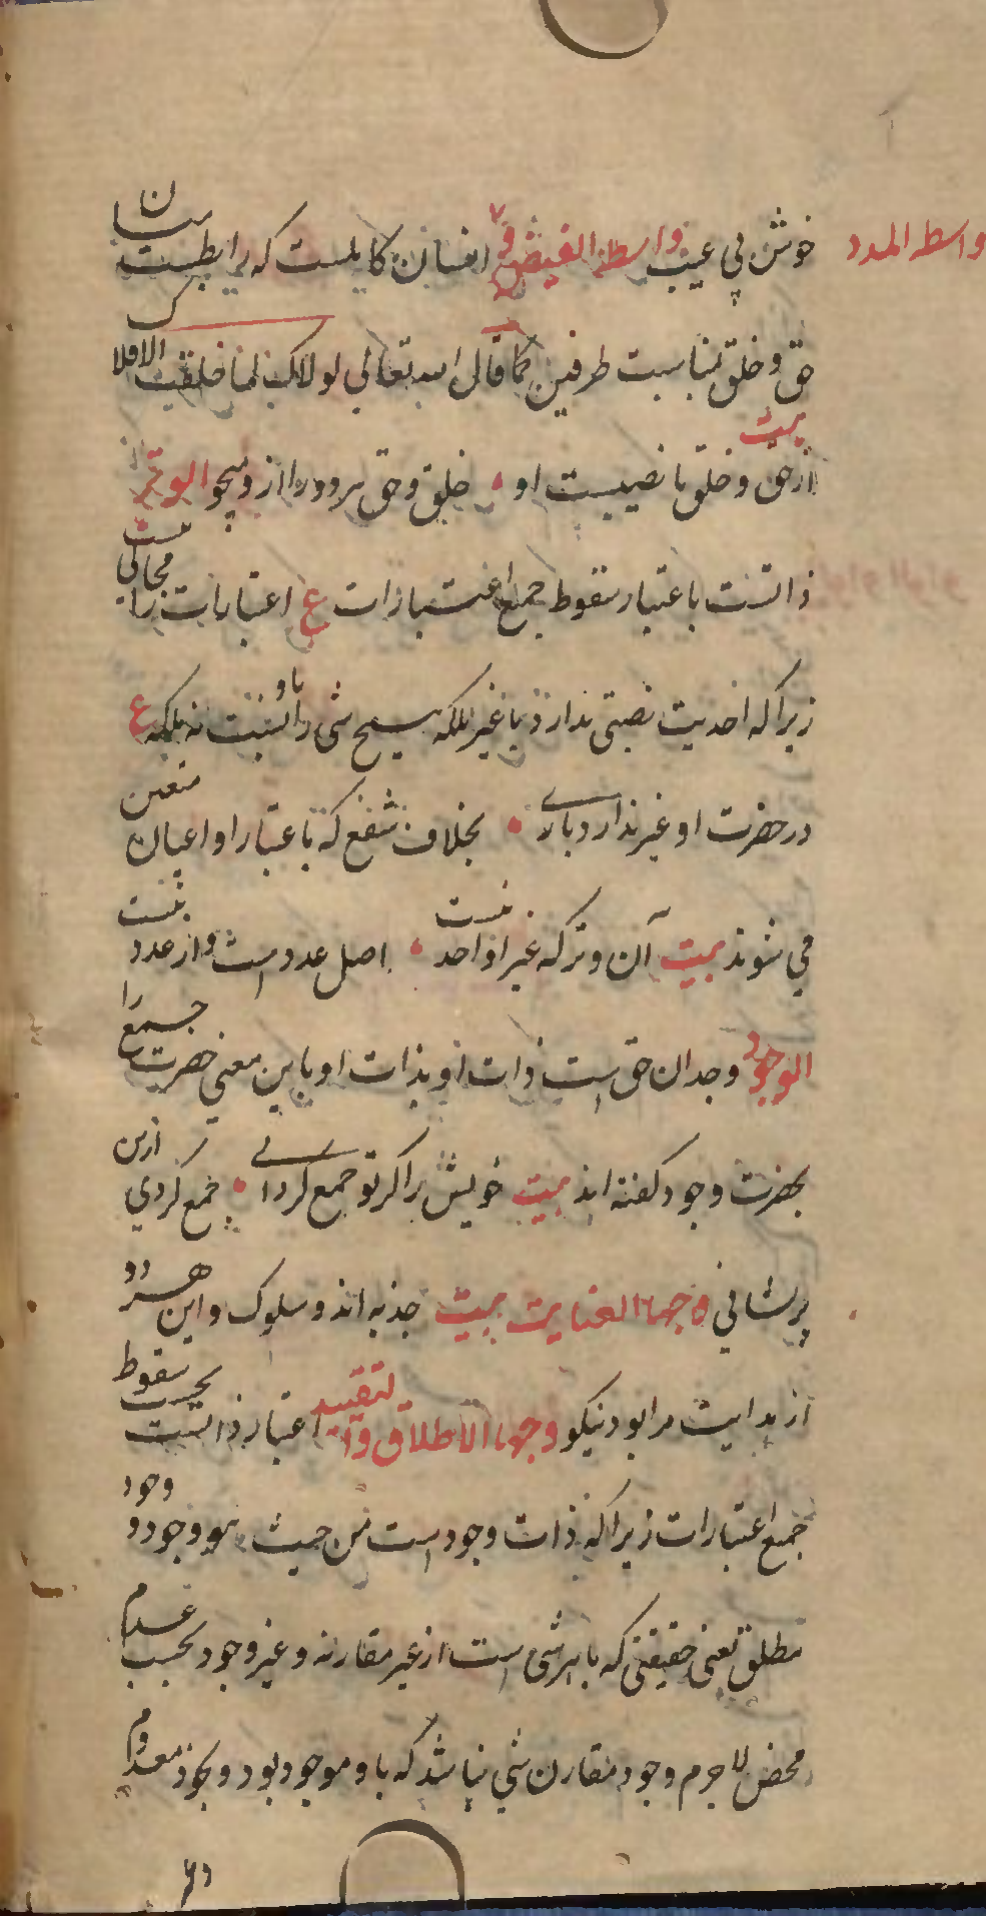 خوش بی عیب واسطة الفیض و انسان کاملست که رابطست میان واسطه المدد
حق و خلق بمناسبت طرفین کما قال الله تعالی لولاک لما خلقت الافلاک
بیت
از حق و خلق با نصیبست او خلق و حق هر دو را ازو میجو الوتر
ذاتست باعتبار سقوط جمیع اعتبارات ع اعتبارات را مجالی نیست
زیرا که احدیت نسبتی ندارد با غیر بلکه هیچ شی را باو نسبت نه بلکه ع
در حضرت او غیر ندارد باری بخلاف شفع که باعتبار او اعیان متعین
می شوند بیت آن وتر که غیر او احد نیست اصل عدد است و از عدد نیست
الوجود وجدان حق است ذات او بذات او باین معنی حضرت جمع را
بحضرت وجود گفته اند بیت خویش را گر تو جمع گردانی جمع گردی ازین
پریشانی وجها العنایت بیت جذبه اند و سلوک و این هر دو
از بدایت مرا بود نیکو وجها الاطلاق والتقیید اعتبار ذاتست بحسب سقوط
جمیع اعتبارات زیرا که ذات وجود است من حیث هو وجود و وجود
مطلق یعنی حقیقتی که با هر شی است از غیر مقارنه و غیر وجود بحسب عدم
محض لاجرم وجود مقارن شی نباشد که باو موجود بود و بخود معدوم